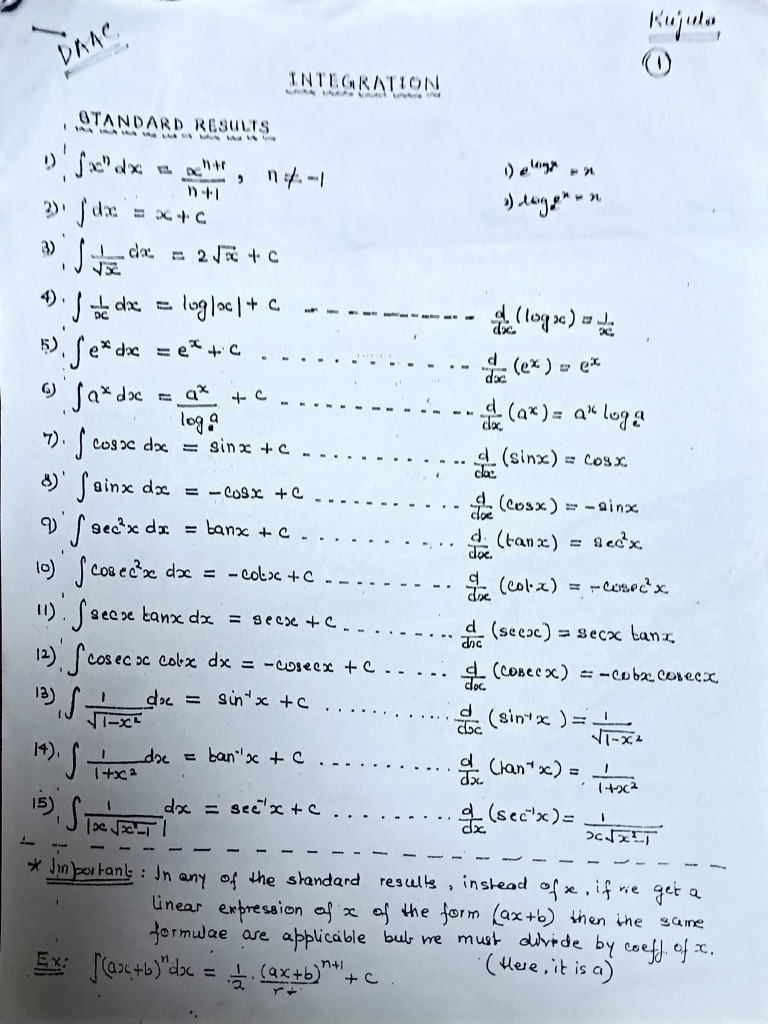 DAAC
Kujula
1
INTEGRATION
STANDARD RESULTS
1) ∫xⁿ dx = xⁿ⁺¹/n+1 , n ≠ -1
1) e^(log x) = x
2) ∫dx = x + c
2) log eˣ = x
3) ∫ 1/√x dx = 2√x + c
4) ∫ 1/x dx = log|x| + c ------------ d/dx (log x) = 1/x
5) ∫eˣ dx = eˣ + c ............ d/dx (eˣ) = eˣ
6) ∫aˣ dx = aˣ/log a + c ------------ d/dx (aˣ) = aˣ log a
7) ∫ cosx dx = sinx + c ............ d/dx (sinx) = cosx
8) ∫ sinx dx = -cosx + c ............ d/dx (cosx) = -sinx
9) ∫ sec²x dx = tanx + c ............ d/dx (tanx) = sec²x
10) ∫ cosec²x dx = -cotx + c -------- d/dx (cotx) = -cosec²x
11) ∫ secx tanx dx = secx + c ........ d/dx (secx) = secx tanx
12) ∫ cosecx cotx dx = -cosecx + c ..... d/dx (cosecx) = -cotx cosecx
13) ∫ 1/√1-x² dx = sin⁻¹x + c ............ d/dx (sin⁻¹x) = 1/√1-x²
14) ∫ 1/1+x² dx = tan⁻¹x + c .......... d/dx (tan⁻¹x) = 1/1+x²
15) ∫ 1/|x√x²-1| dx = sec⁻¹x + c ......... d/dx (sec⁻¹x) = 1/x√x²-1
* Important : In any of the standard results, instead of x, if we get a
linear expression of x of the form (ax+b) then the same
formulae are applicable but we must divide by coeff. of x.
(Here, it is a)
Ex: ∫(ax+b)ⁿ dx = 1/a . (ax+b)ⁿ⁺¹ + c